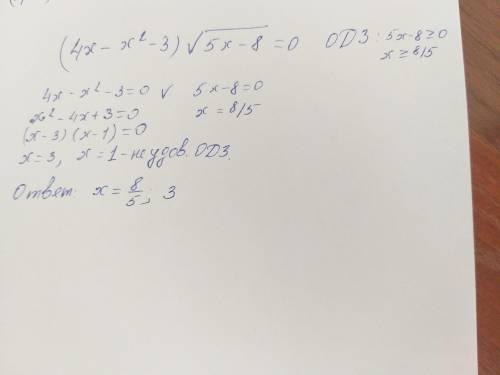 (4x - x² - 3) √5x - 8 = 0 ОДЗ: 5x - 8 ≥ 0
x ≥ 8/5
4x - x² - 3 = 0 v 5x - 8 = 0
x² - 4x + 3 = 0 x = 8/5
(x - 3) (x - 1) = 0
x = 3, x = 1 - не удов. ОДЗ.
Ответ: x = 8/5; 3